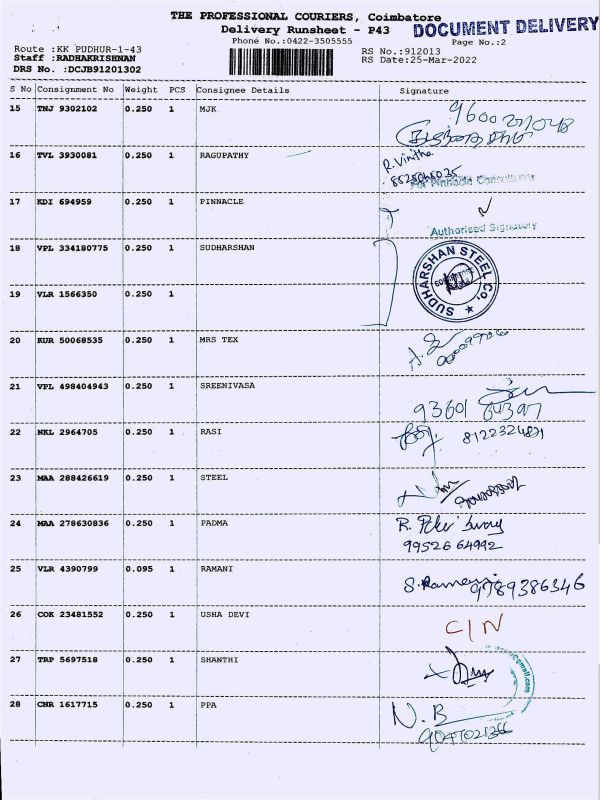 THE PROFESSIONAL COURIERS, Coimbatore
DOCUMENT DELIVERY
Delivery Runsheet - P43
Phone No.:0422-3505555
Page No.:2
Route :KK PUDHUR-1-43
RS No.:912013
Staff :RADHAKRISHNAN
RS Date:25-Mar-2022
DRS No. :DCJB91201302
S No Consignment No Weight PCS Consignee Details Signature
15 TNJ 9302102 0.250 1 MJK
16 TVL 3930081 0.250 1 RAGUPATHY R. Vinitha
For Pinnacle Consultants
17 KDI 694959 0.250 1 PINNACLE
Authorised Signatory
18 VPL 334180775 0.250 1 SUDHARSHAN
SUDHARSHAN STEEL CO.
19 VLR 1566350 0.250 1
20 KUR 50068535 0.250 1 MRS TEX
21 VPL 498404943 0.250 1 SREENIVASA
22 NKL 2964705 0.250 1 RASI
23 MAA 288426619 0.250 1 STEEL
24 MAA 278630836 0.250 1 PADMA R.
99526 64992
25 VLR 4390799 0.095 1 RAMANI 9789386346
26 COK 23481552 0.250 1 USHA DEVI C/N
27 TRP 5697518 0.250 1 SHANTHI
28 CNR 1617715 0.250 1 PPA N. B